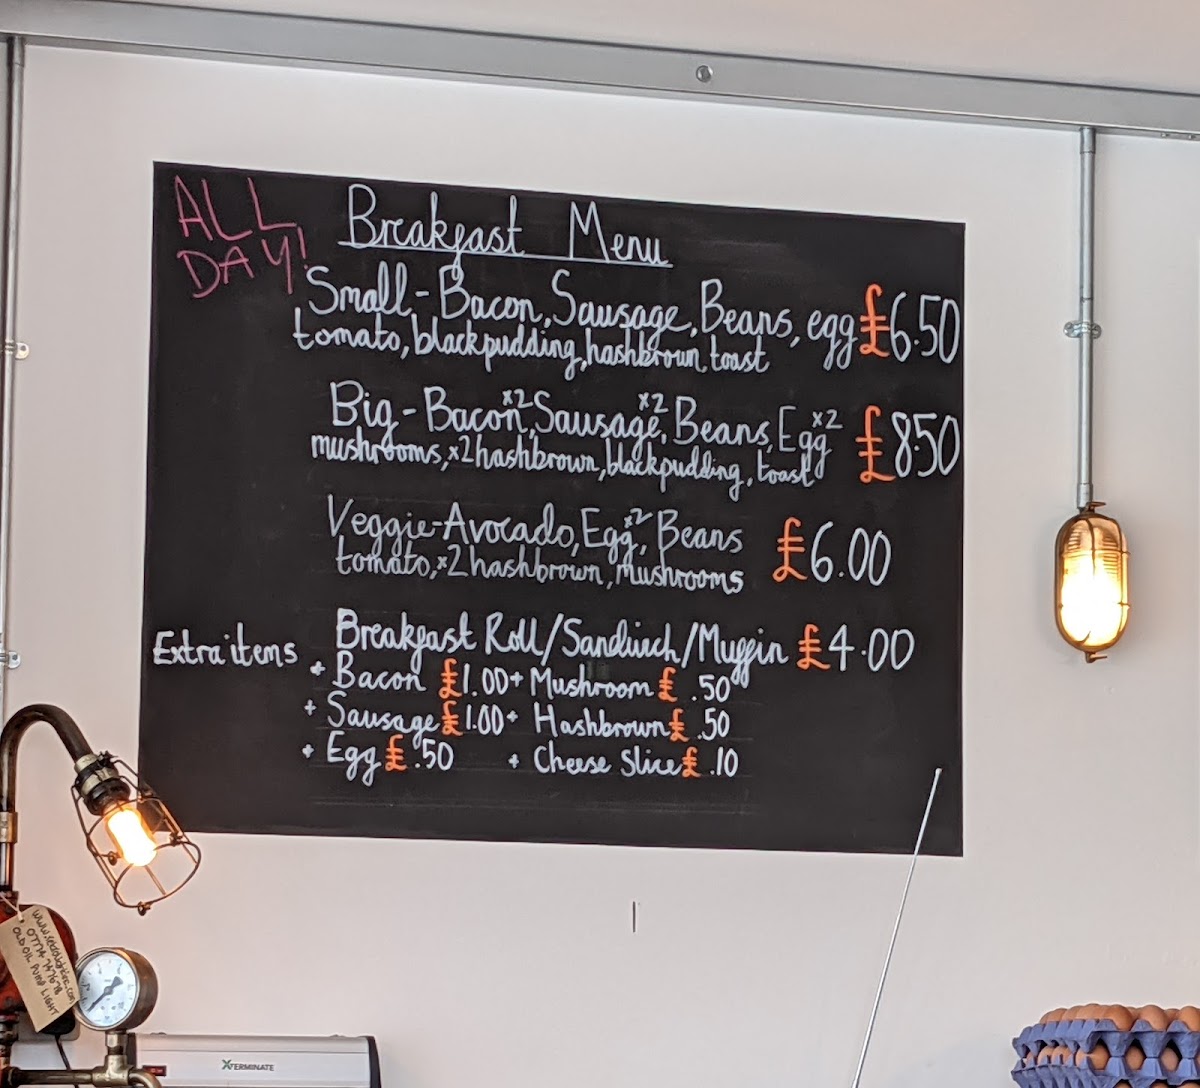 ALL
DAY!
Breakfast Menu
Small-Bacon, Sausage, Beans, egg £6.50
tomato, blackpudding, hashbrown, toast
Big-Bacon x2, Sausage x2, Beans, Egg x2 £8.50
mushrooms, x2 hashbrown, blackpudding, toast
Veggie-Avocado, Egg x2, Beans
tomato, x2 hashbrown, mushrooms £6.00
Breakfast Roll/Sandwich/Muffin £4.00
Extra items
+ Bacon £1.00 + Mushroom £.50
+ Sausage £1.00 + Hashbrown £.50
+ Egg £.50 + Cheese Slice £.10
OLD OIL PUMP LIGHT
XTERMINATE